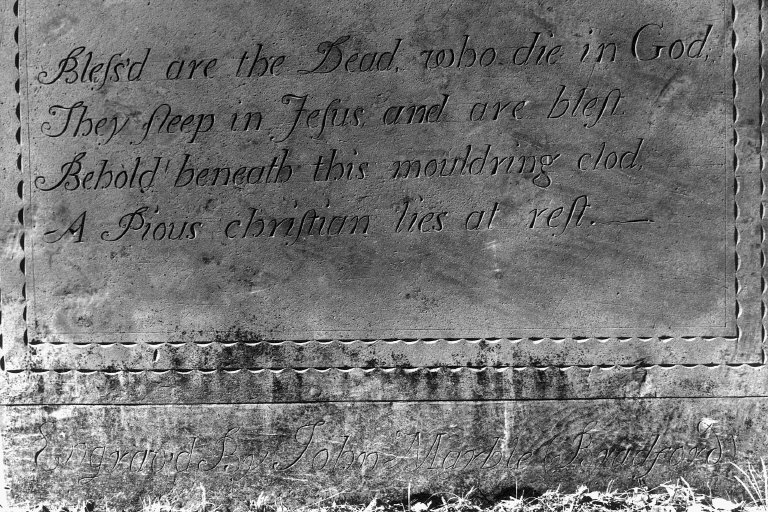 Bleſs'd are the Dead, who die in God,
They ſleep in Jeſus, and are bleſt
Behold! beneath this mouldring clod,
A Pious chriſtian lies at reſt.—
Engrav'd By John Marble Bradford